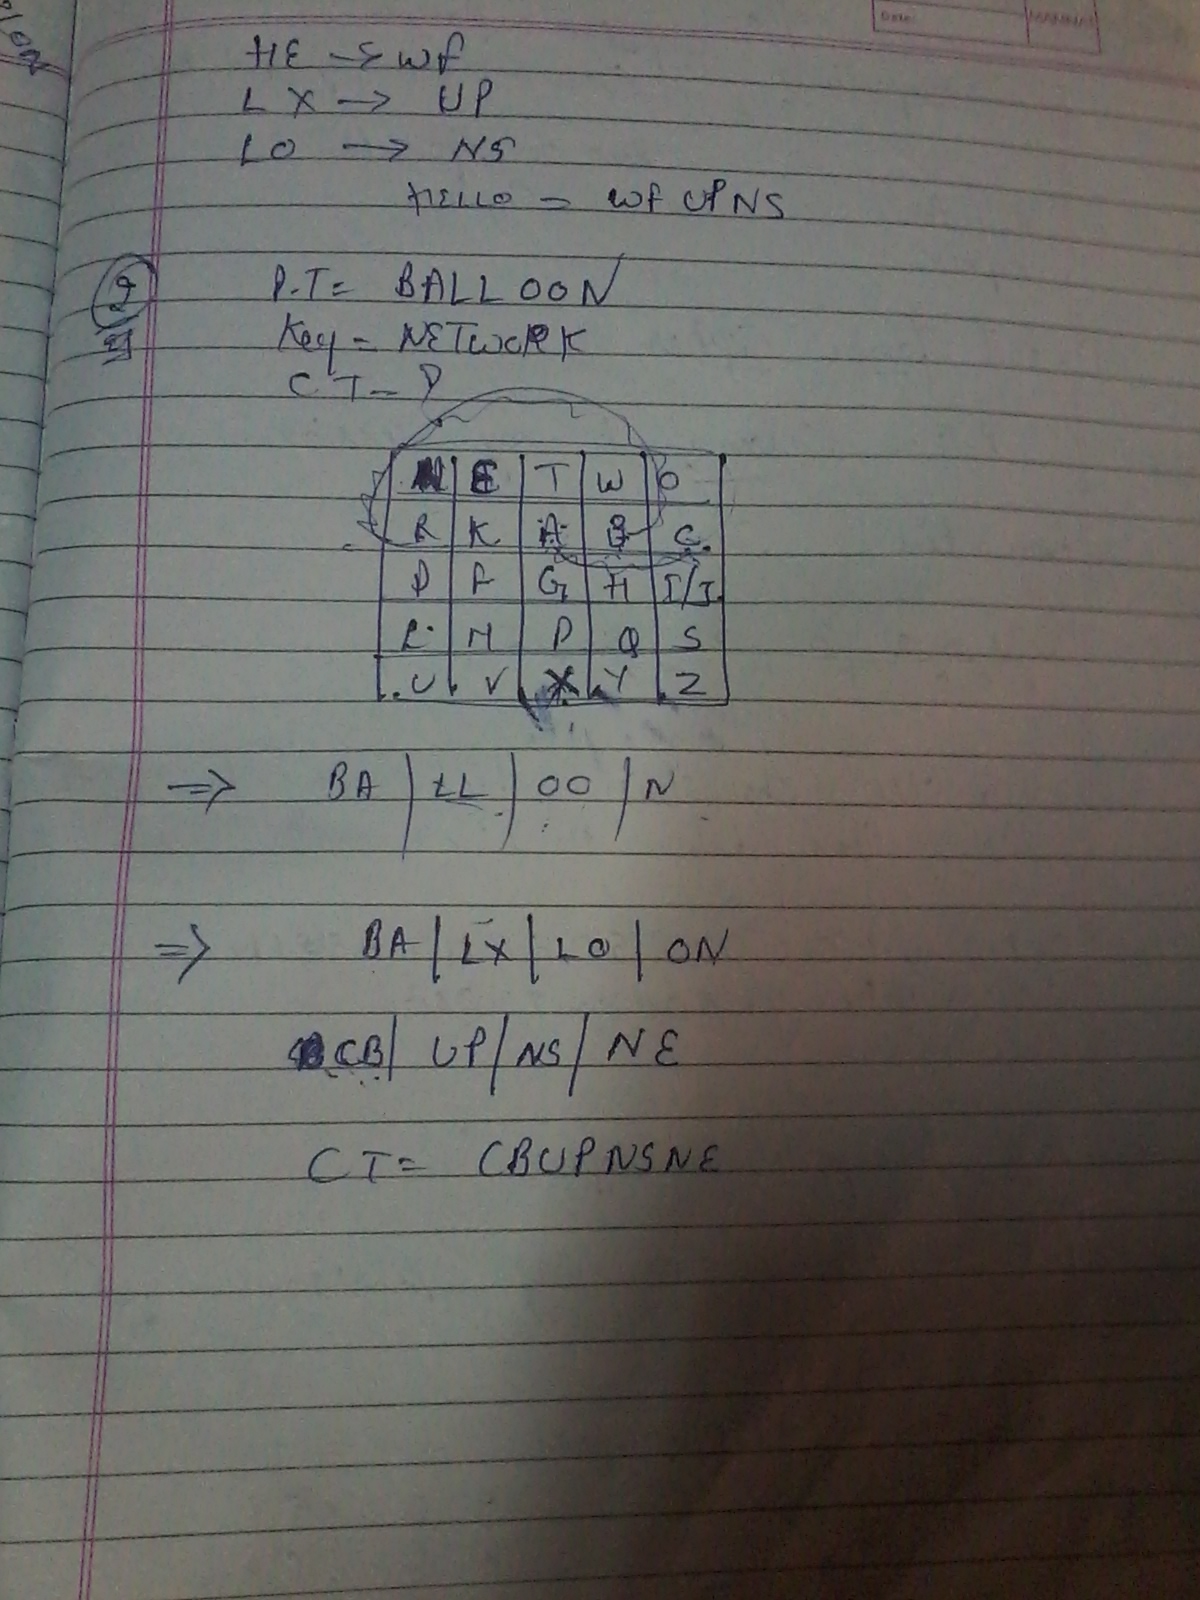 Date:
HE → WF
LX → UP
LO → NS
HELLO = WF UPNS
2
P.T = BALLOON
Key = NETWORK
CT = ?
N E T W O
R K A B C
D F G H I/J
L M P Q S
U V X Y Z
⇒ BA | LL | OO | N
⇒ BA | LX | LO | ON
CB | UP | NS | NE
CT = CBUPNSNE